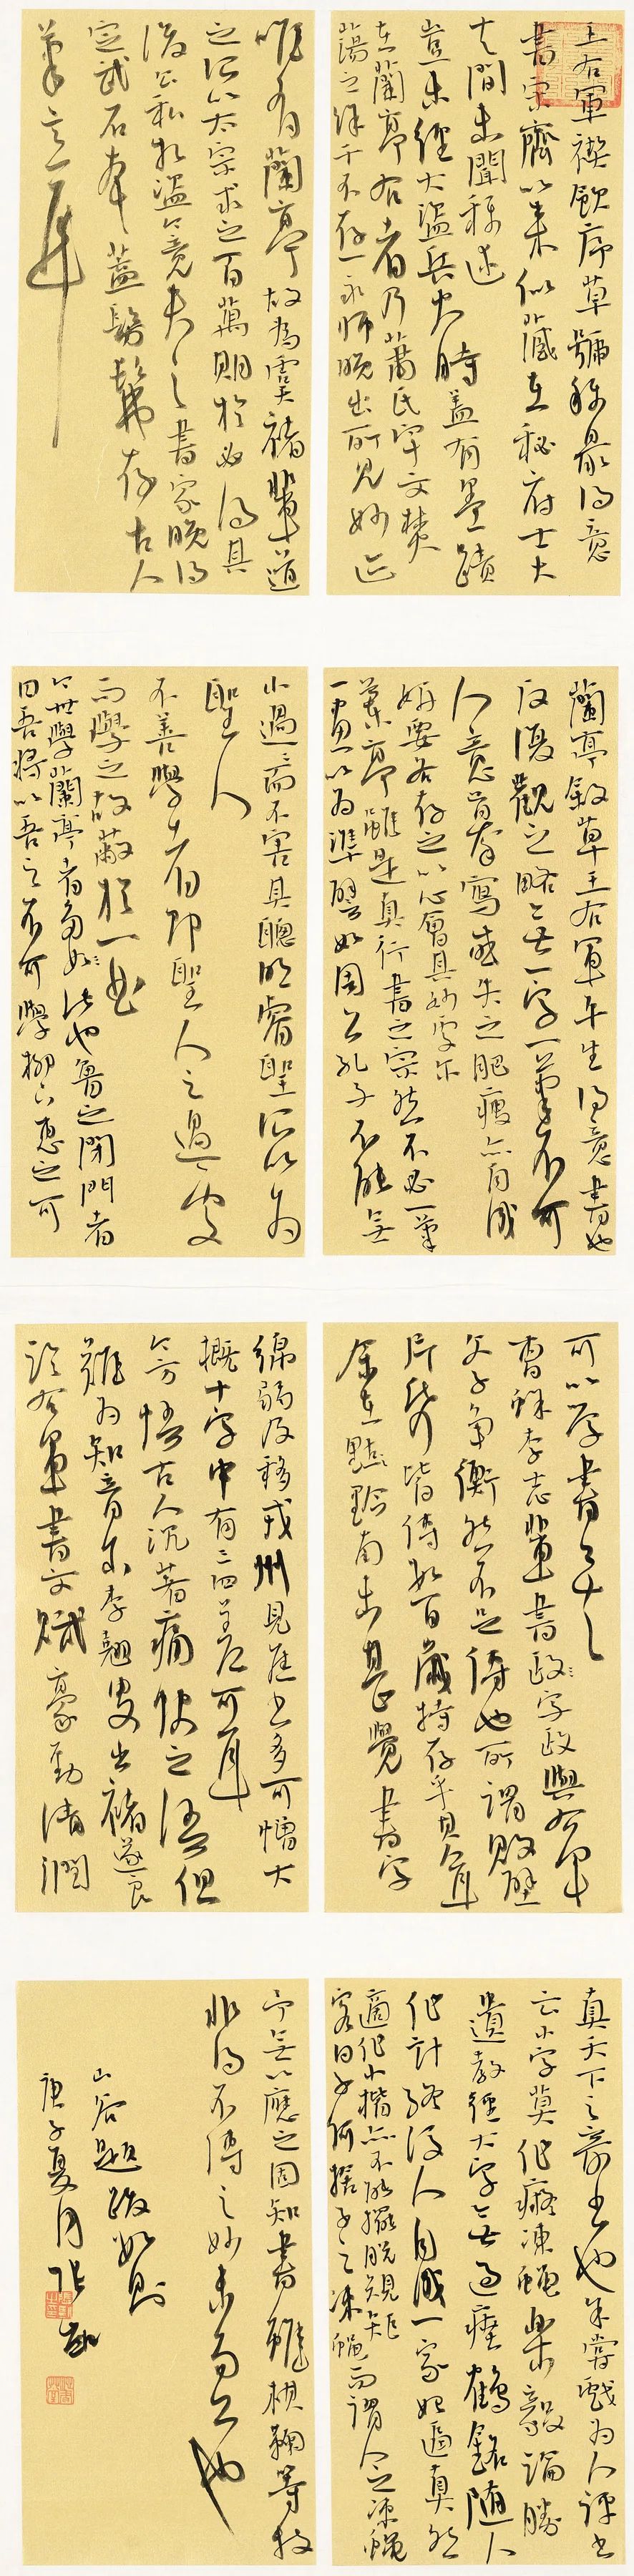 王右军禊飲序草號稱最得意
書宋齊以来似藏在秘府士大
夫間未聞稱述
豈未經大盜兵火時蓋有墨蹟
在蘭亭右者乃蕭氏宇文焚
蕩之餘千不存一永師晚出所見妙迹
唯有蘭亭故為虞褚輩道
之所以太宗求之百萬則於必得其
後公私相盜今竟失之書家晚得
定武石本蓋髣髴存古人
筆意耳
蘭亭敘草王右軍平生得意書也
反復觀之略無一字一筆不可
人意摹寫或失之肥瘦亦自成
妍要各存之以心會其妙處尔
蘭亭雖是真行書之宗然不必一筆
一畫以為準譬如周公孔子不能無
小過過而不害其聰明睿聖所以為
聖人
不善學者即聖人之過處
而學之故蔽於一曲
今世學蘭亭者多如此也魯之閉門者
曰吾將以吾之不可學柳下惠之可
可以學書矣
曹蜍李志輩書字政與右軍
父子争衡然不足傳也所謂敗壁
片紙皆傳數百歲特存乎其人耳
余在黔南未甚覺書字
綿弱及移戎州見舊書多可憎大
概十字中有三四差可耳
今方悟古人沉著痛快之語但
難為知音尔李翹叟出褚遂良
臨右軍書文賦豪勁清潤
真天下之奇書也余嘗戲為人評書
云小字莫作癡凍蠅樂毅論勝
遺教經大字無過瘞鶴銘隨人
作計終後人自成一家始逼真然
適作小楷亦不能擺脫規矩
客曰子何捨子之凍蠅而謂人之凍蠅
予無以應之固知書雖棋鞠等技
非得不傳之妙未易工也
山谷題跋數則
庚子夏月